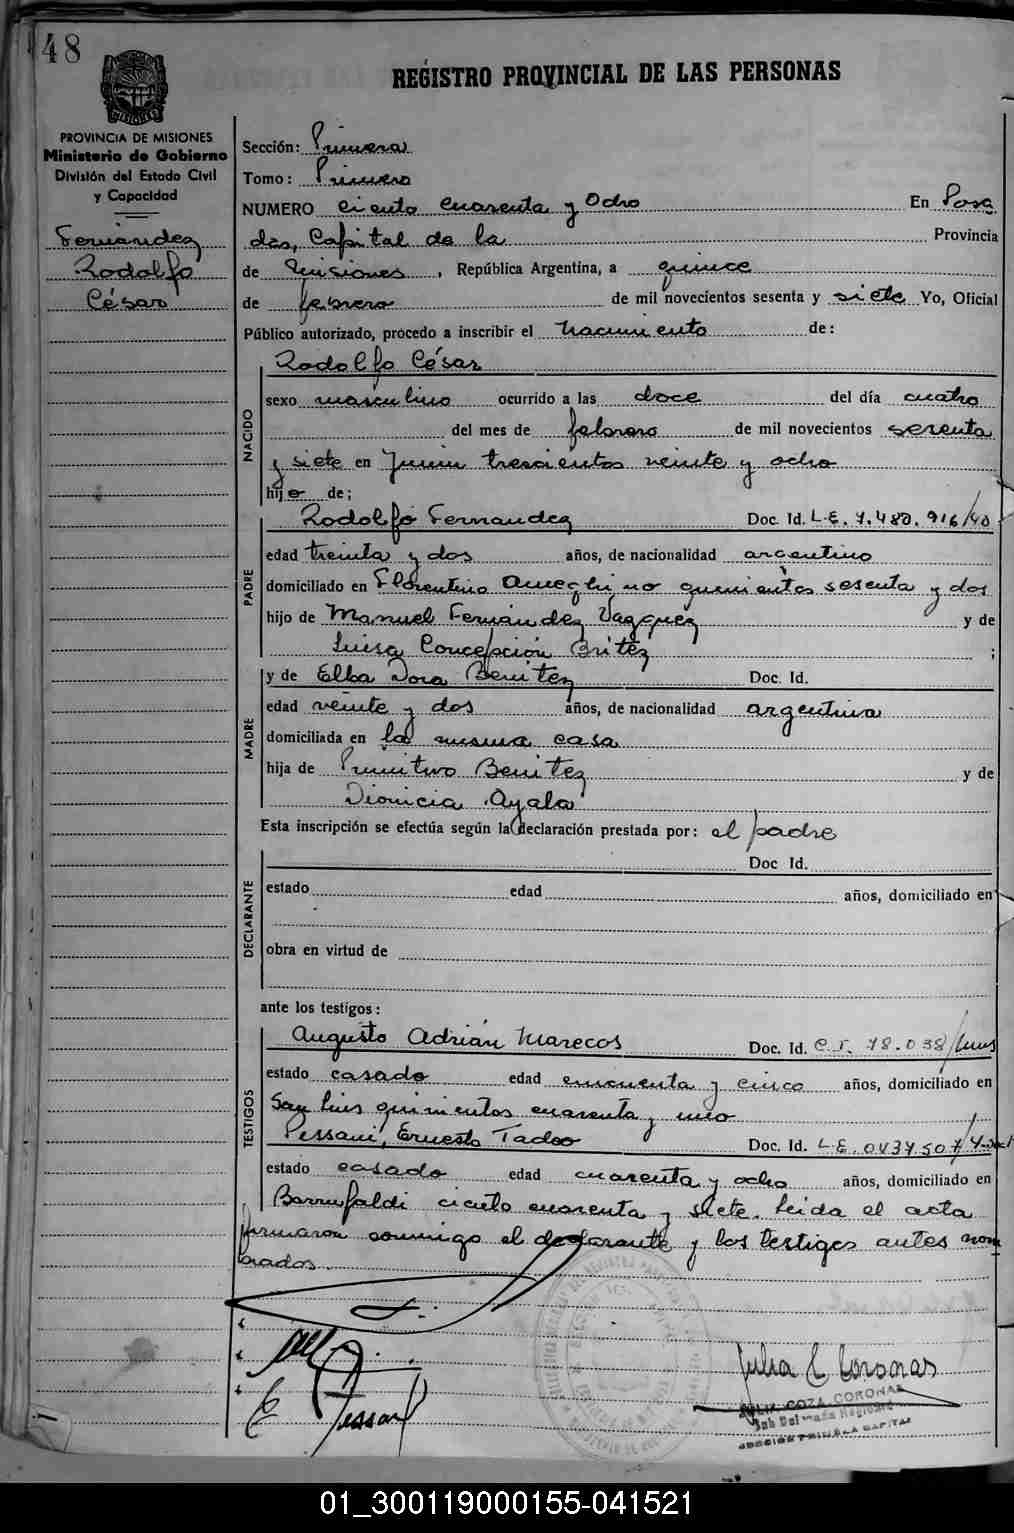 48
REGISTRO PROVINCIAL DE LAS PERSONAS
PROVINCIA DE MISIONES
Ministerio de Gobierno
División del Estado Civil
y Capacidad
Fernández
Rodolfo
César
Sección: Primera
Tomo: Primero
NUMERO ciento cuarenta y Ocho En Posa
das, Capital de la Provincia
de Misiones, República Argentina, a quince
de febrero de mil novecientos sesenta y siete Yo, Oficial
Público autorizado, procedo a inscribir el nacimiento de:
NACIDO
Rodolfo César
sexo masculino ocurrido a las doce del día cuatro
del mes de febrero de mil novecientos sesenta
y siete en Junin trescientos veinte y ocho
hijo de;
PADRE
Rodolfo Fernandez Doc. Id. L.E. 7.480.916/40
edad treinta y dos años, de nacionalidad argentino
domiciliado en Florentino Ameghino quinientos sesenta y dos
hijo de Manuel Fernández Vazquez y de
Luisa Concepción Britez ;
MADRE
y de Elba Dora Benitez Doc. Id.
edad veinte y dos años, de nacionalidad argentina
domiciliada en la misma casa
hija de Primitivo Benitez y de
Dionicia Ayala
Esta inscripción se efectúa según la declaración prestada por: el padre
DECLARANTE
Doc Id.
estado edad años, domiciliado en
obra en virtud de
ante los testigos:
TESTIGOS
Augusto Adrián Marecos Doc. Id. C.I. 78.038/
estado casado edad cincuenta y cinco años, domiciliado en
San Luis quinientos cuarenta y uno
Pessani, Ernesto Tadeo Doc. Id. L.E. 0437507/
estado casado edad cuarenta y ocho años, domiciliado en
Barrufaldi ciento cuarenta y siete. Leida el acta
firmaron conmigo el declarante y los testigos antes nom
brados.
Julia C Coronas
JULIA COZA CORONAS
SECCION PRIMERA CAPITAL
01_300119000155-041521